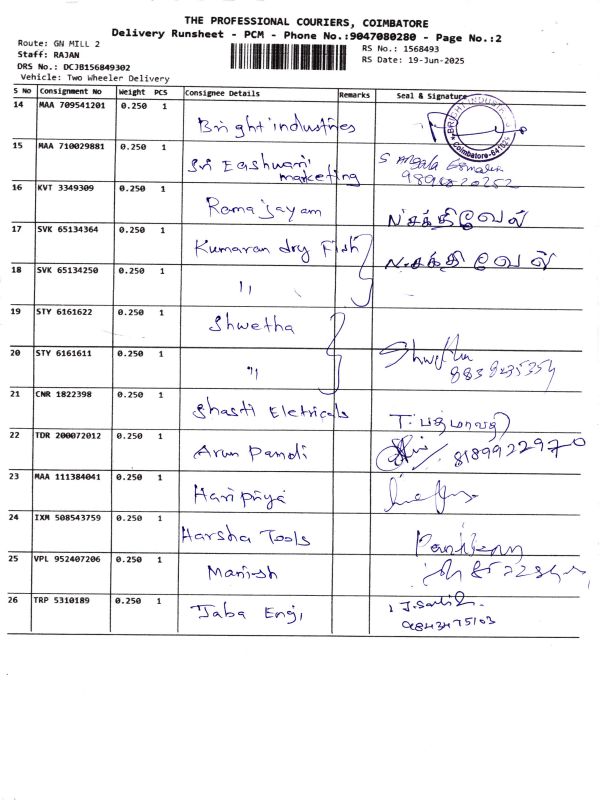 THE PROFESSIONAL COURIERS, COIMBATORE
Delivery Runsheet - PCM - Phone No.:9047080280 - Page No.:2
Route: GN MILL 2
RS No.: 1568493
Staff: RAJAN
RS Date: 19-Jun-2025
DRS No.: DCJB156849302
Vehicle: Two Wheeler Delivery
S No Consignment No Weight PCS Consignee Details Remarks Seal & Signature
14 MAA 709541201 0.250 1 Bright industries
BRIGHT INDUSTRIES Coimbatore-641
15 MAA 710029881 0.250 1 Sri Eashwari
marketing
16 KVT 3349309 0.250 1 Ramajayam N சக்திவேல்
17 SVK 65134364 0.250 1 Kumaran dry Fish N. சக்திவேல்
18 SVK 65134250 0.250 1 "
19 STY 6161622 0.250 1 Shwetha
20 STY 6161611 0.250 1 " Shwetha
21 CNR 1822398 0.250 1 Shasti Eletricals T. பத்மாவதி
22 TDR 200072012 0.250 1 Arun Pandi 8189922970
23 MAA 111384041 0.250 1 Haripriya
24 IXM 508543759 0.250 1 Harsha Tools
25 VPL 952407206 0.250 1 Manish
26 TRP 5310189 0.250 1 Jaba Engi,
9843475103